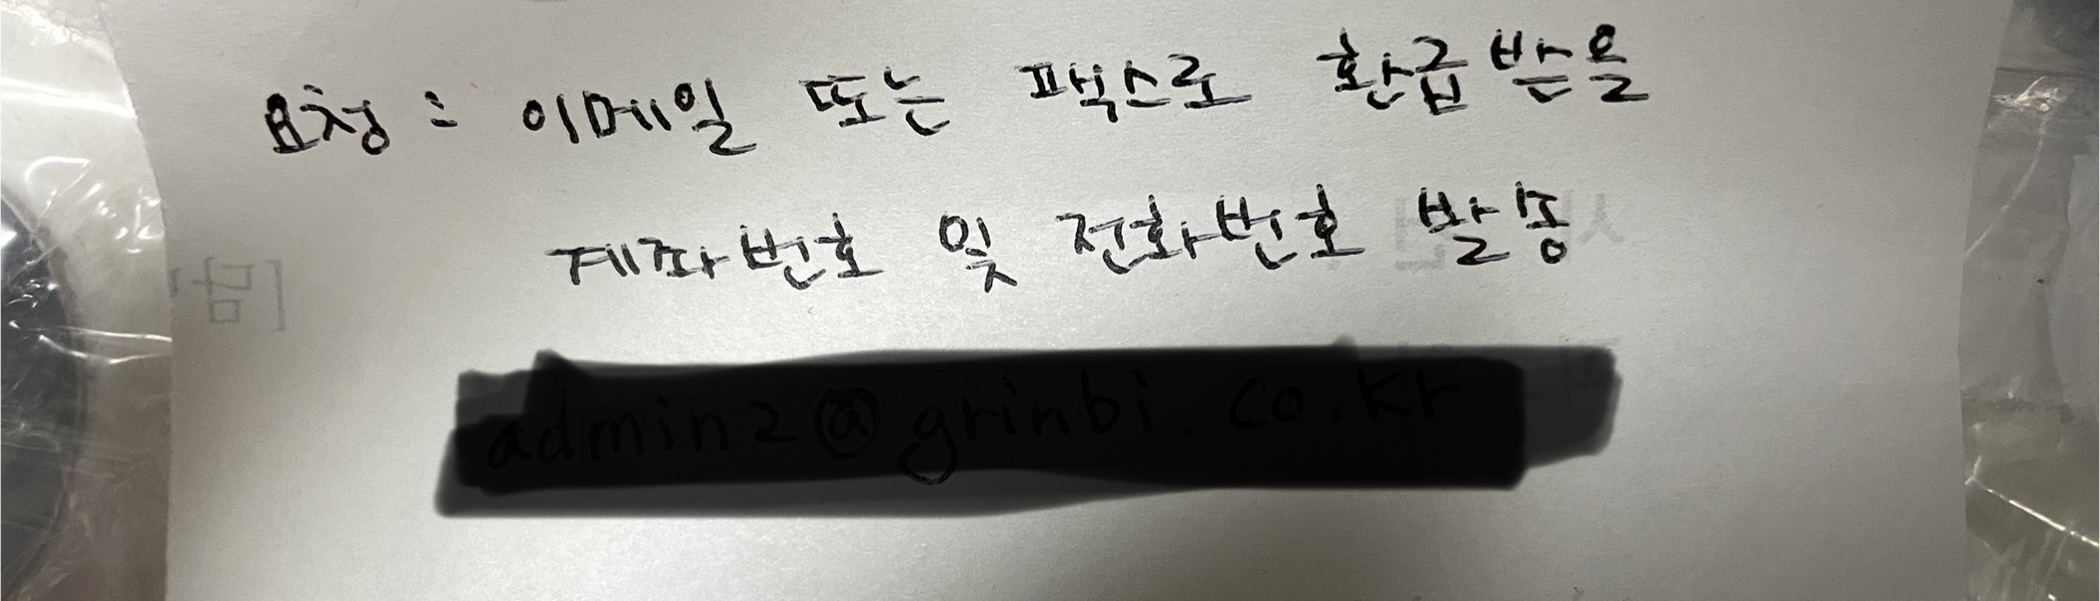 요청 : 이메일 또는 팩스로 환급 받을
계좌번호 및 전화번호 발송